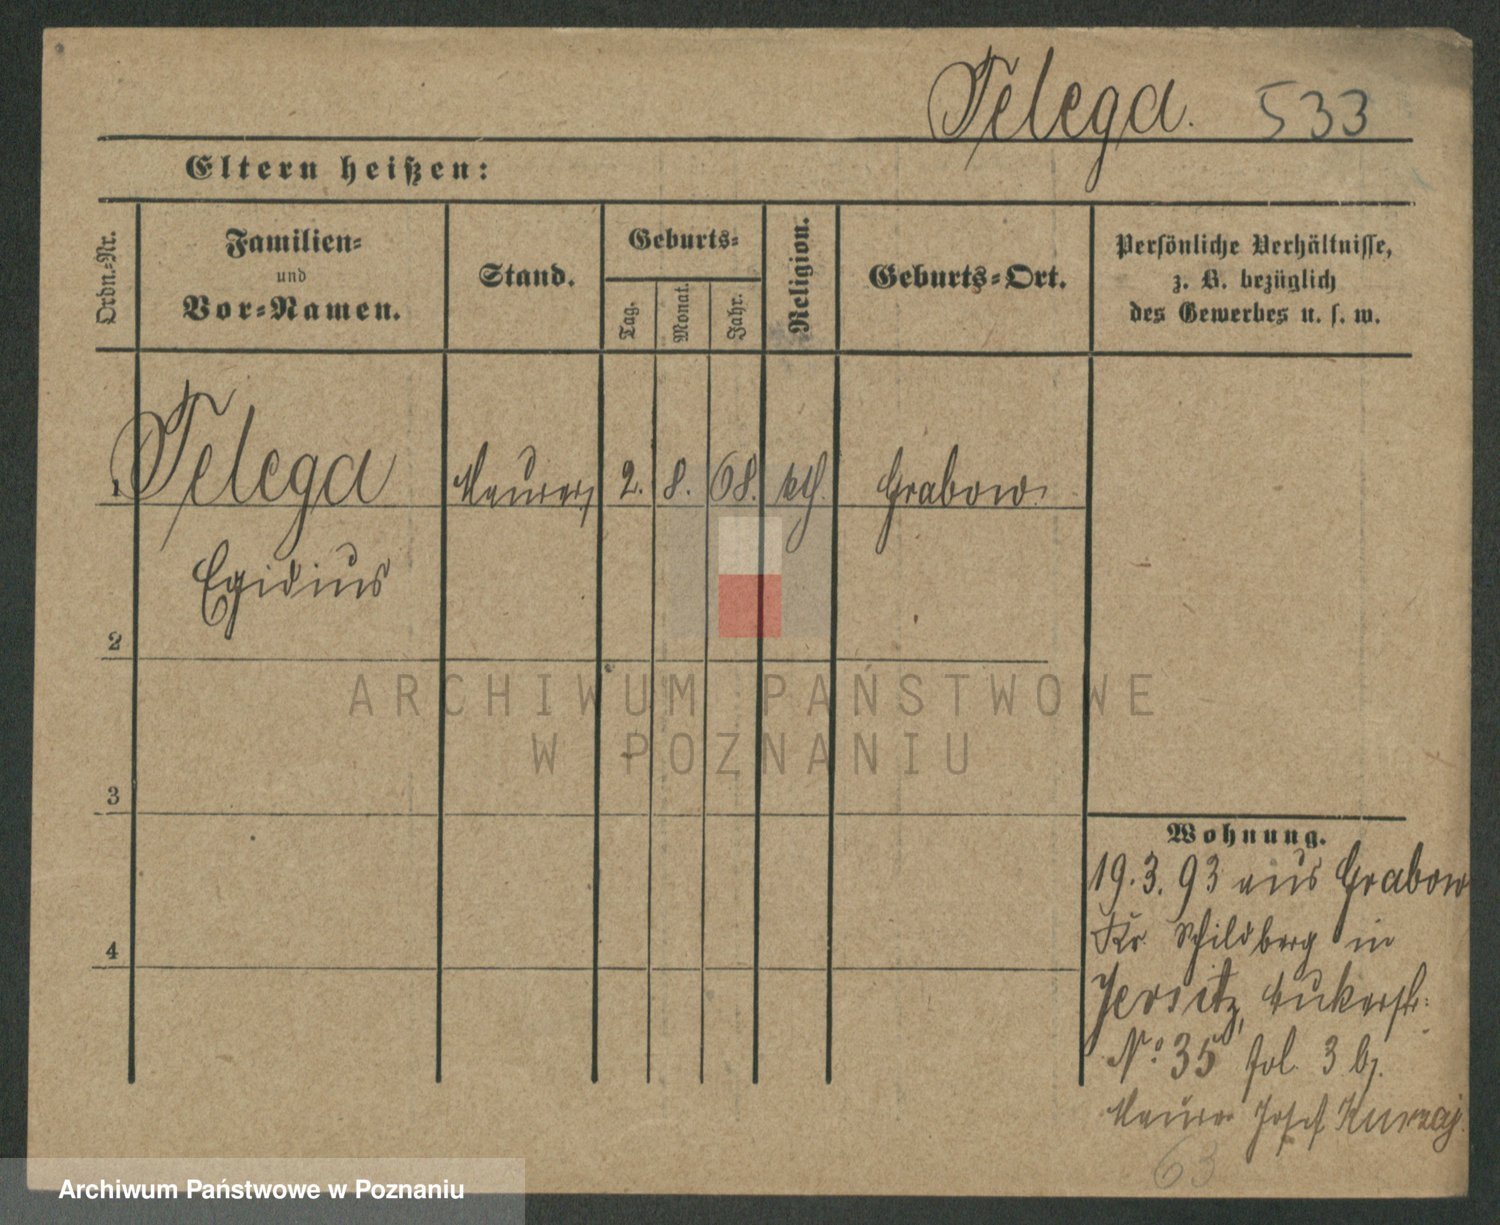 Telega. 533
Eltern heißen:
Ordn.-Nr.
Familien-
und
Vor-Namen.
Stand.
Geburts-
Tag.
Monat.
Jahr.
Religion.
Geburts-Ort.
Persönliche Verhältnisse,
z. B. bezüglich
des Gewerbes u. s. w.
1 Telega Maurer 2. 8. 68. kth. Grabow
Egidius
2
3
4
Wohnung.
19. 3. 93 aus Grabow
Kr Schildberg in
Jersitz,
No 35 fol. 3 bj.
Maurer Josef Kurzaj.
63
ARCHIWUM PAŃSTWOWE
W POZNANIU
Archiwum Państwowe w Poznaniu